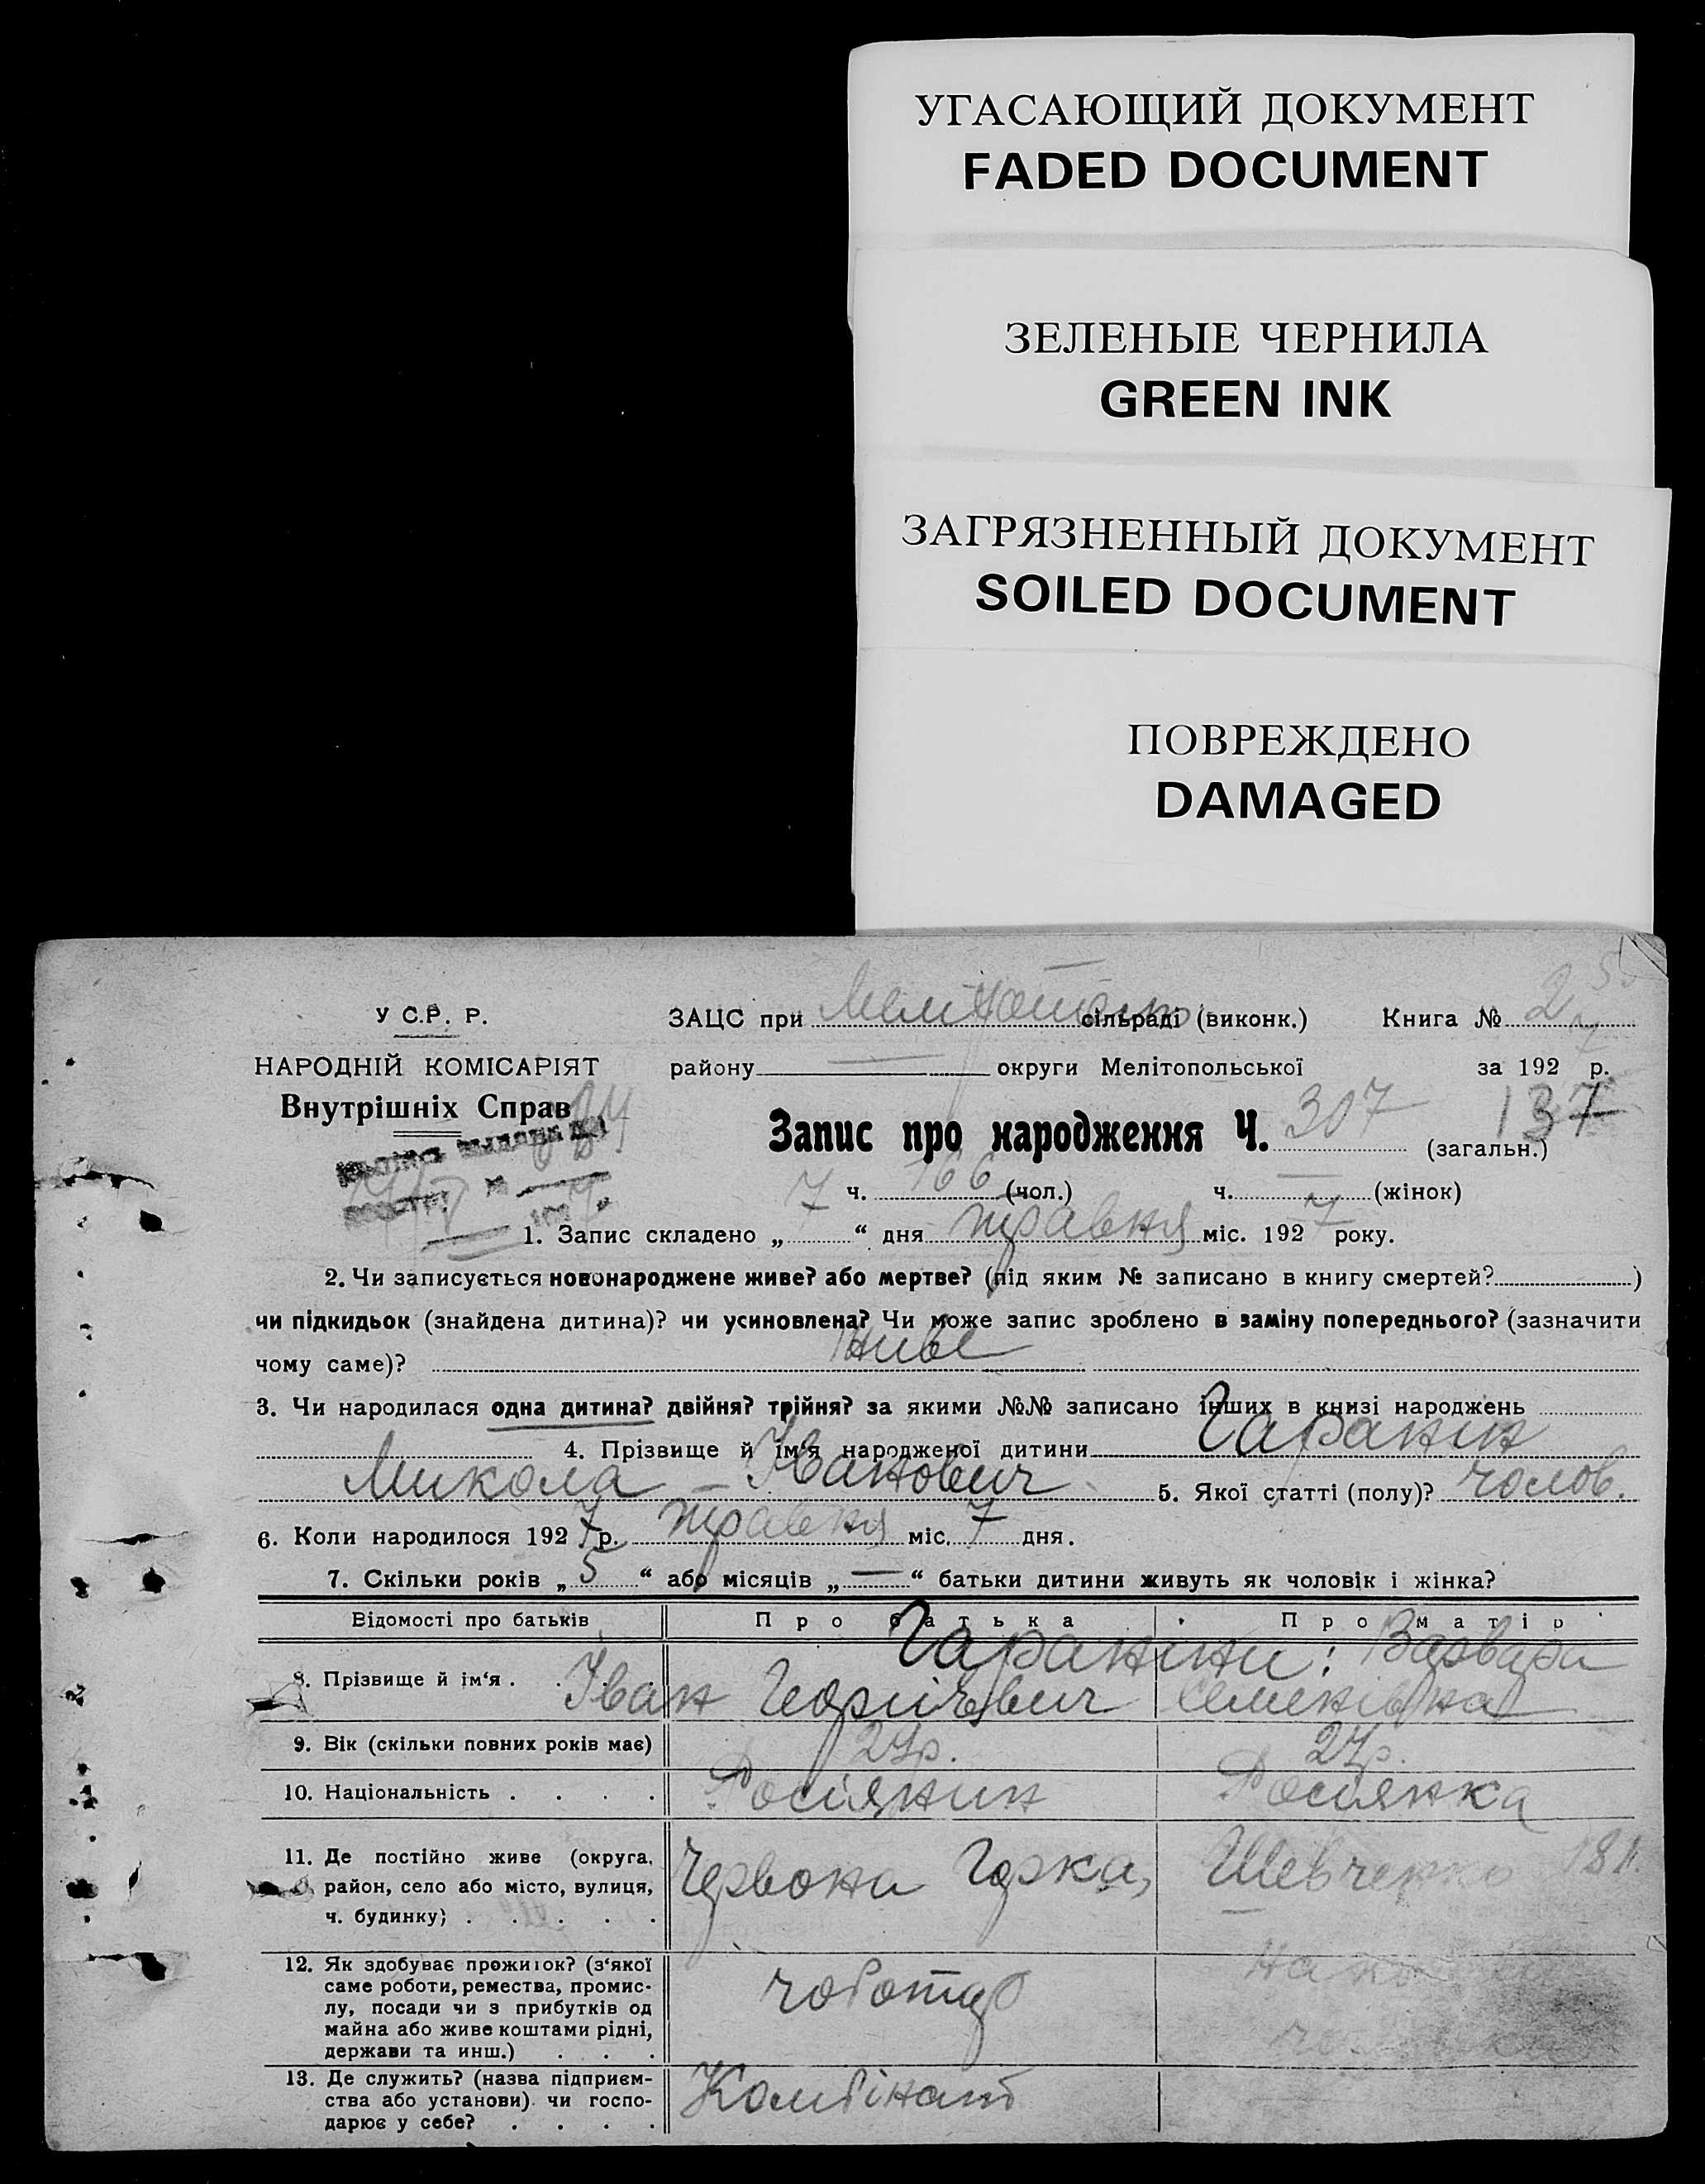 УГАСАЮЩИЙ ДОКУМЕНТ
FADED DOCUMENT
ЗЕЛЕНЫЕ ЧЕРНИЛА
GREEN INK
ЗАГРЯЗНЕННЫЙ ДОКУМЕНТ
SOILED DOCUMENT
ПОВРЕЖДЕНО
DAMAGED
У С.Р. Р.
НАРОДНІЙ КОМІСАРІЯТ
Внутрішніх Справ
ЗАЦС при сільраді (виконк.) Книга № 2
району — округи Мелітопольської за 192 7 р.
Запис про народження Ч. 307 (загальн.) 137
ч. 166 (чол.) ч. — (жінок)
1. Запис складено „ 7 “ дня травня міс. 192 7 року.
2. Чи записується новонароджене живе? або мертве? (під яким № записано в книгу смертей? )
чи підкидьок (знайдена дитина)? чи усиновлена? Чи може запис зроблено в заміну попереднього? (зазначити
чому саме)? живе
3. Чи народилася одна дитина? двійня? трійня? за якими №№ записано інших в книзі народжень
4. Прізвище й ім‘я народженої дитини Гаранин
Микола Іванович 5. Якої статті (полу)? чолов.
6. Коли народилося 192 7 р. травня міс. 7 дня.
7. Скільки років „ 5 “ або місяців „ — “ батьки дитини живуть як чоловік і жінка?
Відомості про батьків Про батька Про матір
8. Прізвище й ім‘я . Гаранини: Варвара
Іван Георгієвич Семенівна
9. Вік (скільки повних років має) 27р. 27р.
10. Національність . . . . Росіянин Росіянка
11. Де постійно живе (округа, район, село або місто, вулиця, ч. будинку) . . . . . Червона Горка, Шевченко 18
12. Як здобуває прожиток? (з‘якої саме роботи, ремества, промислу, посади чи з прибутків од майна або живе коштами рідні, держави та инш.) . . . чоботар
13. Де служить? (назва підприємства або установи) чи господарює у себе? . . . . Комбінат